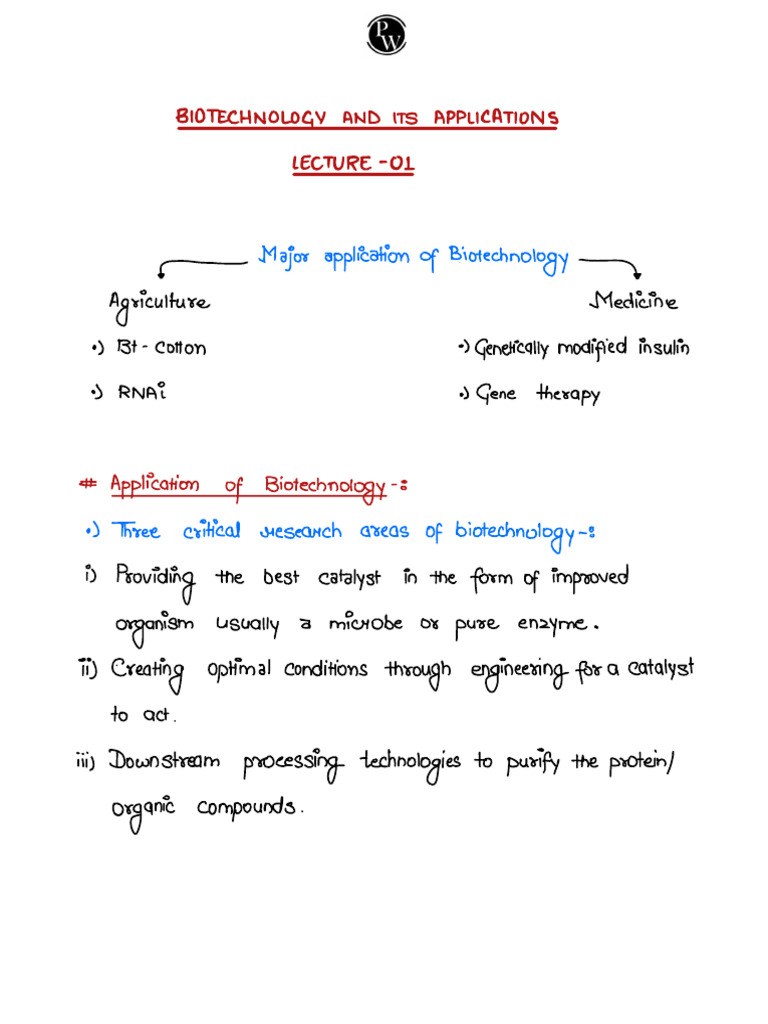 PW
BIOTECHNOLOGY AND ITS APPLICATIONS
LECTURE -01
Major application of Biotechnology
Agriculture Medicine
•) Bt - Cotton •) Genetically modified insulin
•) RNAi •) Gene therapy
# Application of Biotechnology -:
•) Three critical research areas of biotechnology -:
i) Providing the best catalyst in the form of improved
organism usually a microbe or pure enzyme.
ii) Creating optimal conditions through engineering for a catalyst
to act.
iii) Downstream processing technologies to purify the protein/
organic compounds.